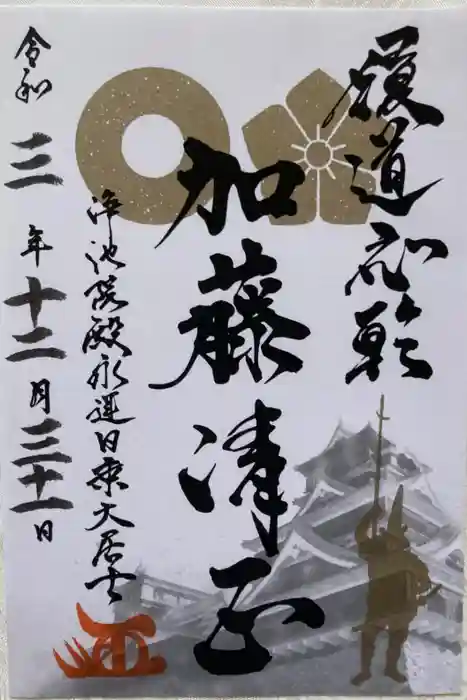 履道応乾
加藤清正
浄池院殿永運日乗大居士
令和三年十二月三十一日